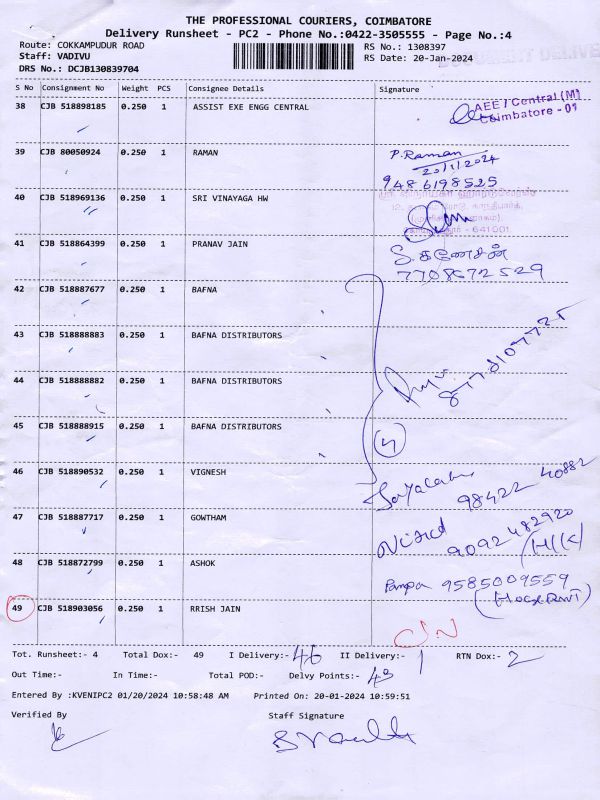 THE PROFESSIONAL COURIERS, COIMBATORE
Delivery Runsheet - PC2 - Phone No.:0422-3505555 - Page No.:4
Route: COKKAMPUDUR ROAD
Staff: VADIVU
DRS No.: DCJB130839704
RS No.: 1308397
RS Date: 20-Jan-2024
S No Consignment No Weight PCS Consignee Details Signature
38 CJB 518898185 0.250 1 ASSIST EXE ENGG CENTRAL
AEE / Central (M)
Coimbatore - 01
39 CJB 80050924 0.250 1 RAMAN P. Raman
20/1/2024
9486198525
40 CJB 518969136 0.250 1 SRI VINAYAGA HW
641001
41 CJB 518864399 0.250 1 PRANAV JAIN S. கணேசன்
7708672529
42 CJB 518887677 0.250 1 BAFNA
43 CJB 518888883 0.250 1 BAFNA DISTRIBUTORS
44 CJB 518888882 0.250 1 BAFNA DISTRIBUTORS
45 CJB 518888915 0.250 1 BAFNA DISTRIBUTORS 4
46 CJB 518890532 0.250 1 VIGNESH
98422 40882
47 CJB 518887717 0.250 1 GOWTHAM
9092482920
48 CJB 518872799 0.250 1 ASHOK Pampa 9585009559
49 CJB 518903056 0.250 1 RRISH JAIN
Tot. Runsheet:- 4 Total Dox:- 49 I Delivery:- 46 II Delivery:- 1 RTN Dox:- 2
Out Time:- In Time:- Total POD:- Delvy Points:- 43
Entered By :KVENIPC2 01/20/2024 10:58:48 AM Printed On: 20-01-2024 10:59:51
Verified By Staff Signature